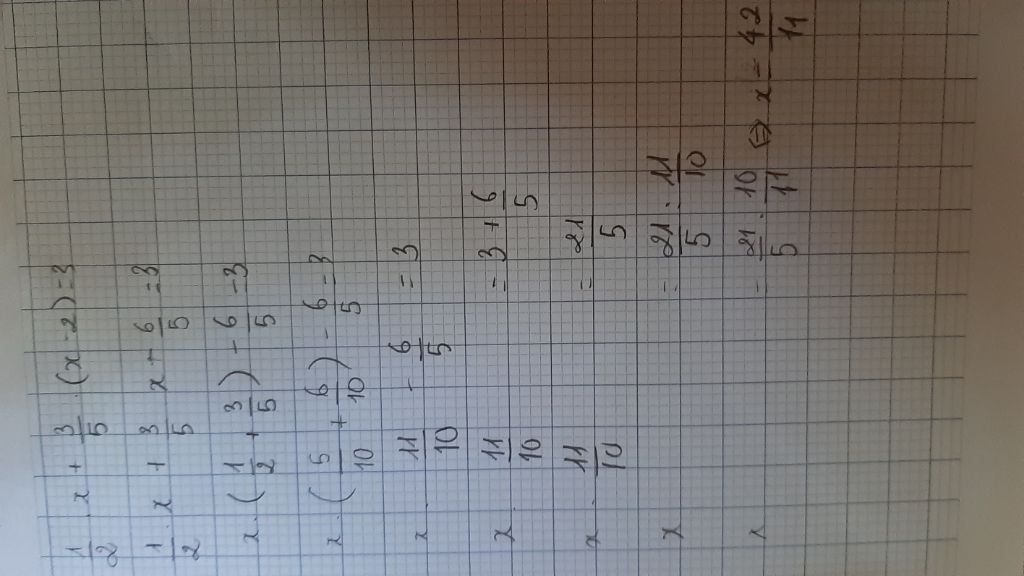 1/2 . x + 3/5 . (x - 2) = 3
1/2 . x + 3/5 x + 6/5 = 3
x . (1/2 + 3/5) - 6/5 = 3
x . (5/10 + 6/10) - 6/5 = 3
x . 11/10 - 6/5 = 3
x . 11/10 = 3 + 6/5
x . 11/10 = 21/5
x = 21/5 : 11/10
x = 21/5 . 10/11 ⇔ x = 42/11